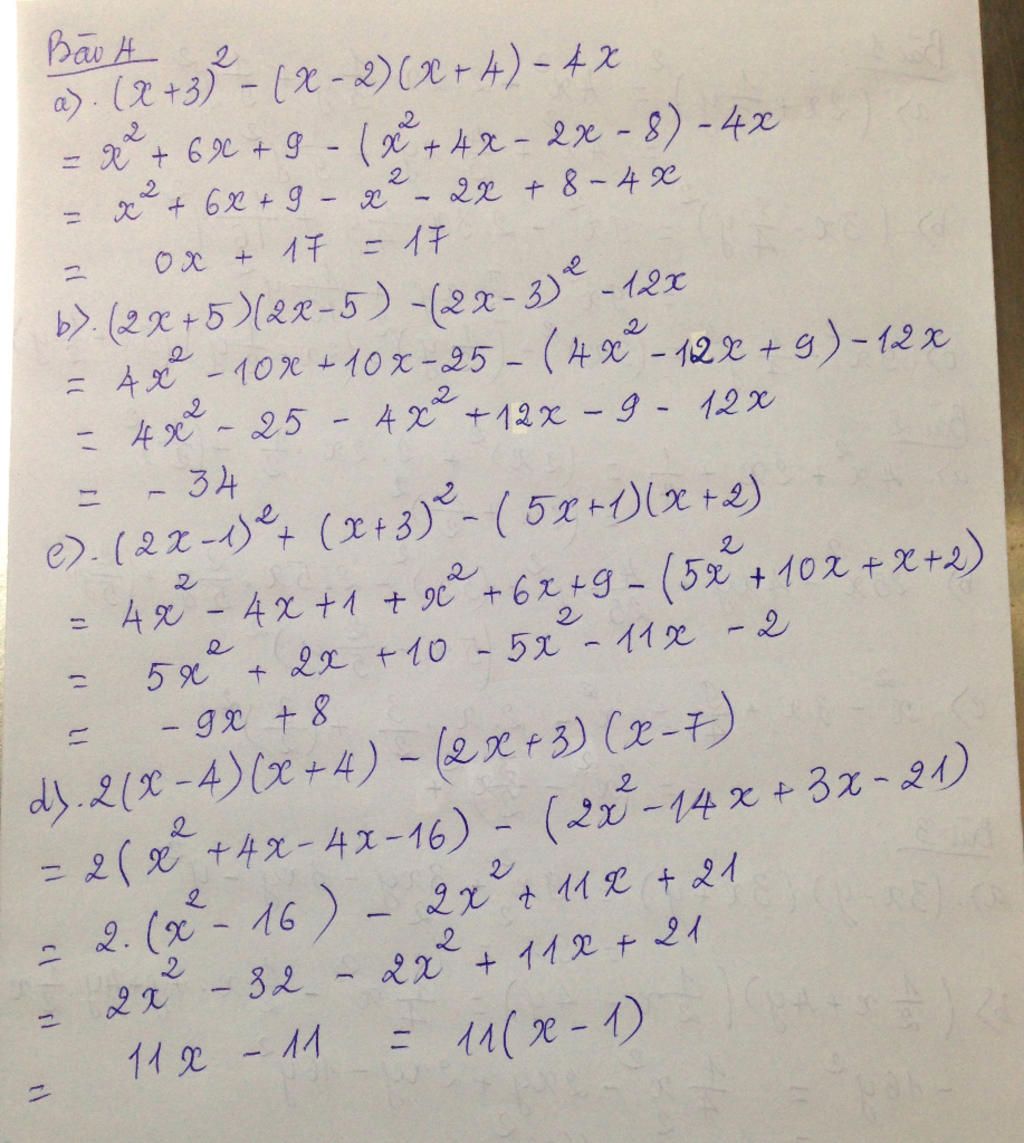 Bài 4
a). (x+3)² - (x-2)(x+4) - 4x
= x² + 6x + 9 - (x² + 4x - 2x - 8) - 4x
= x² + 6x + 9 - x² - 2x + 8 - 4x
= 0x + 17 = 17
b). (2x+5)(2x-5) - (2x-3)² - 12x
= 4x² - 10x + 10x - 25 - (4x² - 12x + 9) - 12x
= 4x² - 25 - 4x² + 12x - 9 - 12x
= - 34
c). (2x-1)² + (x+3)² - (5x+1)(x+2)
= 4x² - 4x + 1 + x² + 6x + 9 - (5x² + 10x + x + 2)
= 5x² + 2x + 10 - 5x² - 11x - 2
= - 9x + 8
d). 2(x-4)(x+4) - (2x+3)(x-7)
= 2(x² + 4x - 4x - 16) - (2x² - 14x + 3x - 21)
= 2.(x² - 16) - 2x² + 11x + 21
= 2x² - 32 - 2x² + 11x + 21
= 11x - 11 = 11(x-1)